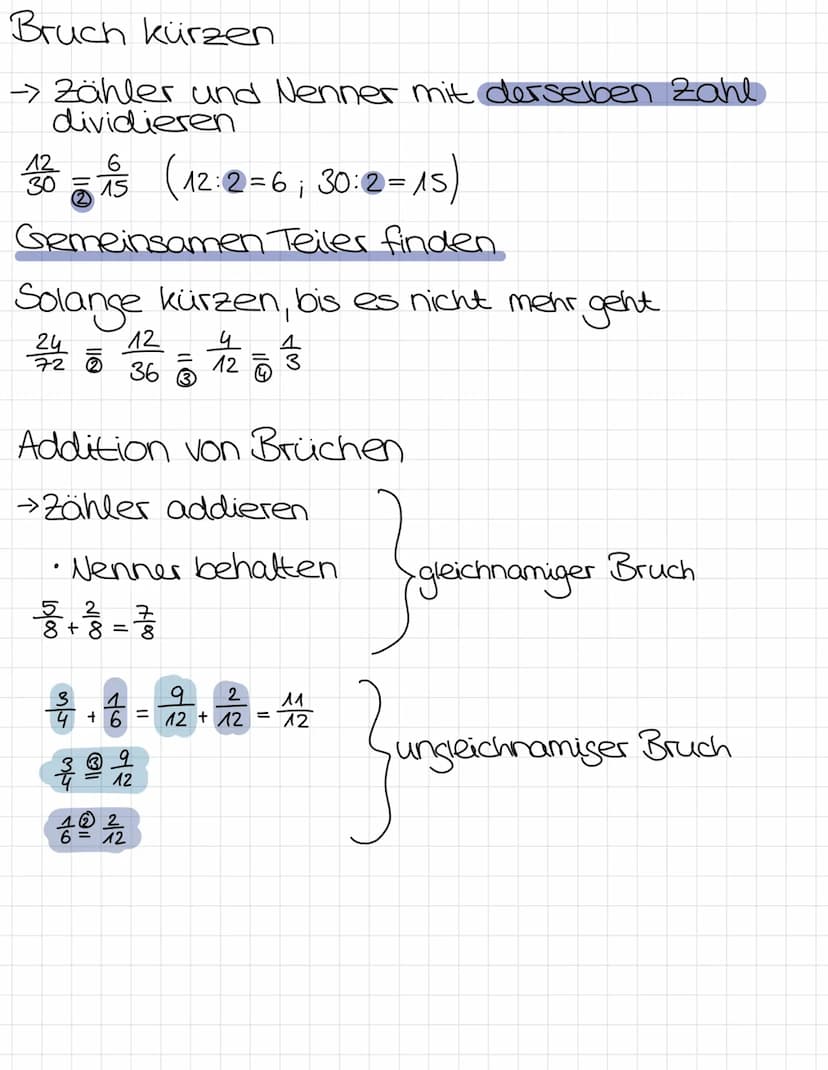 Bruch kürzen
→ Zähler und Nenner mit derselben Zahl
dividieren
12/30 =② 6/15 (12:2=6 ; 30:2=15)
Gemeinsamen Teiler finden
Solange kürzen, bis es nicht mehr geht
24/72 =② 12/36 =③ 4/12 =④ 1/3
Addition von Brüchen
→ Zähler addieren
· Nenner behalten
gleichnamiger Bruch
5/8 + 2/8 = 7/8
3/4 + 1/6 = 9/12 + 2/12 = 11/12
ungleichnamiger Bruch
3/4 ③= 9/12
1/6 ②= 2/12